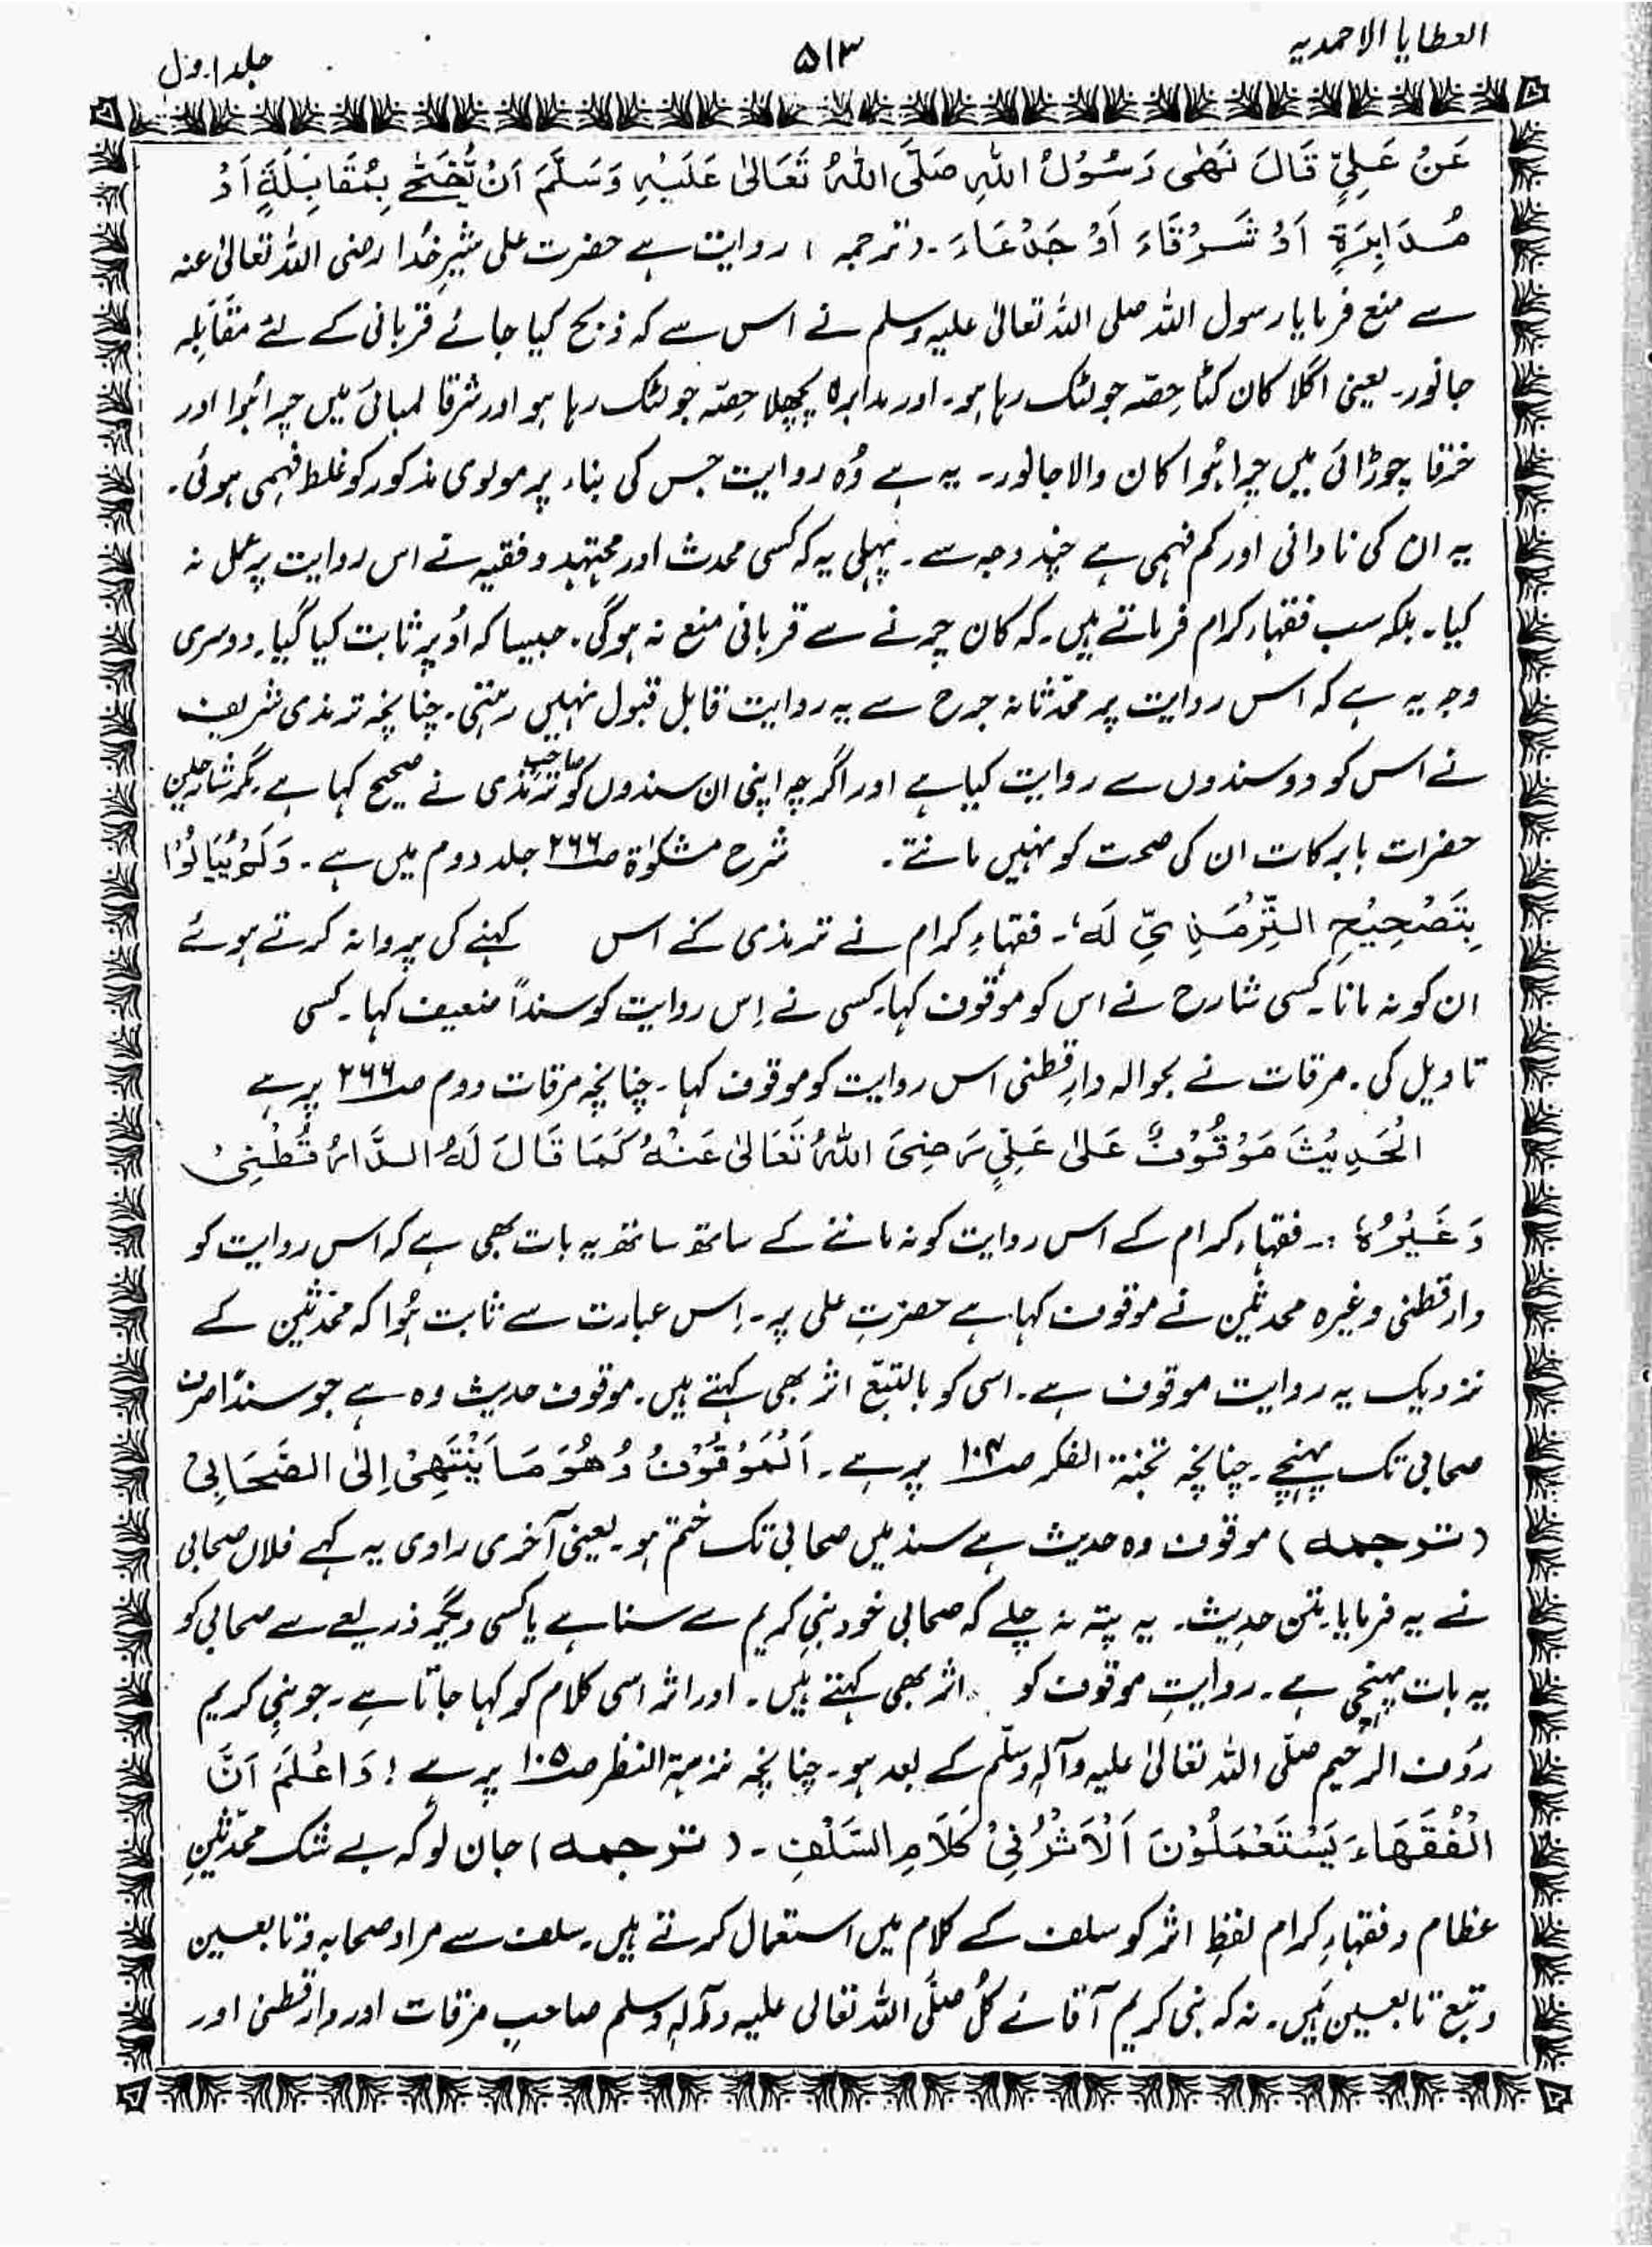 العطایا الاحمدیہ
۵۱۳
جلد اول
عَنْ عَلِیٍّ قَالَ نَھٰی رَسُوْلُ اللہِ صَلَّی اللہُ تَعَالٰی عَلَیْہِ وَسَلَّمَ اَنْ نُّضَحِّیَ بِمُقَابِلَۃٍ اَوْ
مُدَابِرَۃٍ اَوْ شَرْقَاءَ اَوْ جَدْعَاءَ۔ (ترجمہ) روایت ہے حضرت علی شیرِ خدا رضی اللہ تعالیٰ عنہ
سے منع فرمایا رسول اللہ صلی اللہ تعالیٰ علیہ وسلم نے اس سے کہ ذبح کیا جائے قربانی کے لئے مقابلہ
جانور۔ یعنی اگلا کان کٹا حصّہ جو لٹک رہا ہو۔ اور مدابرہ پچھلا حصّہ جو لٹک رہا ہو اور شرقا لمبائی میں چرا ہُوا اور
خرقا چوڑائی میں چرا ہُوا کان والا جانور۔ یہ ہے وُہ روایت جس کی بناء پر مولوی مذکور کو غلط فہمی ہوئی۔
یہ ان کی نادانی اور کم فہمی ہے چند وجہ سے۔ پہلی یہ کہ کسی محدث اور مجتہد و فقیہ نے اس روایت پر عمل نہ
کیا۔ بلکہ سب فقہاء کرام فرماتے ہیں۔ کہ کان چرنے سے قربانی منع نہ ہوگی۔ جیسا کہ اُوپر ثابت کیا گیا۔ دوسری
وجہ یہ ہے کہ اس روایت پر محدّثانہ جرح سے یہ روایت قابل قبول نہیں رہتی۔ چنانچہ ترمذی شریف
نے اس کو دو سندوں سے روایت کیا ہے اور اگرچہ اپنی ان سندوں کو صاحب ترمذی نے صحیح کہا ہے مگر شارحین
حضرات بابرکات ان کی صحت کو نہیں مانتے۔ شرح مشکوٰۃ صـ۲۶۶ جلد دوم میں ہے۔ وَلَمْ یُبَالُوْا
بِتَصْحِیْحِ التِّرْمَذِیِّ لَہٗ۔ فقہاءِ کرام نے ترمذی کے اس کہنے کی پروا نہ کرتے ہوئے
ان کو نہ مانا۔ کسی شارح نے اس کو موقوف کہا۔ کسی نے اِس روایت کو سنداً ضعیف کہا۔ کسی
تاویل کی۔ مرقات نے بحوالہ دارِقطنی اس روایت کو موقوف کہا۔ چنانچہ مرقات دوم صـ۲۶۶ پر ہے
الْحَدِیْثَ مَوْقُوْفٌ عَلٰی عَلِیٍّ رَضِیَ اللہُ تَعَالٰی عَنْہُ کَمَا قَالَ لَہُ الدَّارُ قُطْنِیْ
وَغَیْرُہٗ :۔ فقہاء کرام کے اس روایت کو نہ ماننے کے ساتھ ساتھ یہ بات بھی ہے کہ اس روایت کو
دارقطنی وغیرہ محدثین نے موقوف کہا ہے حضرتِ علی پر۔ اِس عبارت سے ثابت ہُوا کہ محدّثین کے
نزدیک یہ روایت موقوف ہے۔ اسی کو بالتبّع اثر بھی کہتے ہیں۔ موقوف حدیث وہ ہے جو سنداً صرف
صحابی تک پہنچے۔ چنانچہ نخبۃ الفکر صـ۱۰۴ پر ہے۔ اَلْمَوْقُوْفُ وَھُوَ مَا یَنْتَھِیْ اِلٰی الصَّحَابِیْ
(ترجمہ) موقوف وہ حدیث ہے سند میں صحابی تک ختم ہو۔ یعنی آخری راوی یہ کہے فلاں صحابی
نے یہ فرمایا۔ متن حدیث۔ یہ پتہ نہ چلے کہ صحابی خود نبی کریم سے سنا ہے یا کسی دیگر ذریعے سے صحابی کو
یہ بات پہنچی ہے۔ روایتِ موقوف کو اثر بھی کہتے ہیں۔ اور اثر اسی کلام کو کہا جاتا ہے۔ جو نبی کریم
رؤف الرحیم صلّی اللہ تعالیٰ علیہ وآلہٖ وسلّم کے بعد ہو۔ چنانچہ نزہۃ النظر صـ۱۰۵ پر ہے ! وَاعْلَمْ اَنَّ
الْفُقَھَاءَ یَسْتَعْمِلُوْنَ اَلْاَثَرَ فِیْ کَلَامِ السَّلْفِ۔ (ترجمہ) جان لو کہ بے شک محدّثینِ
عظام و فقہاءِ کرام لفظِ اثر کو سلف کے کلام میں استعمال کرتے ہیں۔ سلف سے مراد صحابہ و تابعین
و تبع تابعین ہَیں۔ نہ کہ نبی کریم آقائے کُل صلّی اللہ تعالی علیہ وآلہٖ وسلم صاحبِ مرقات اور دارقطنی اور